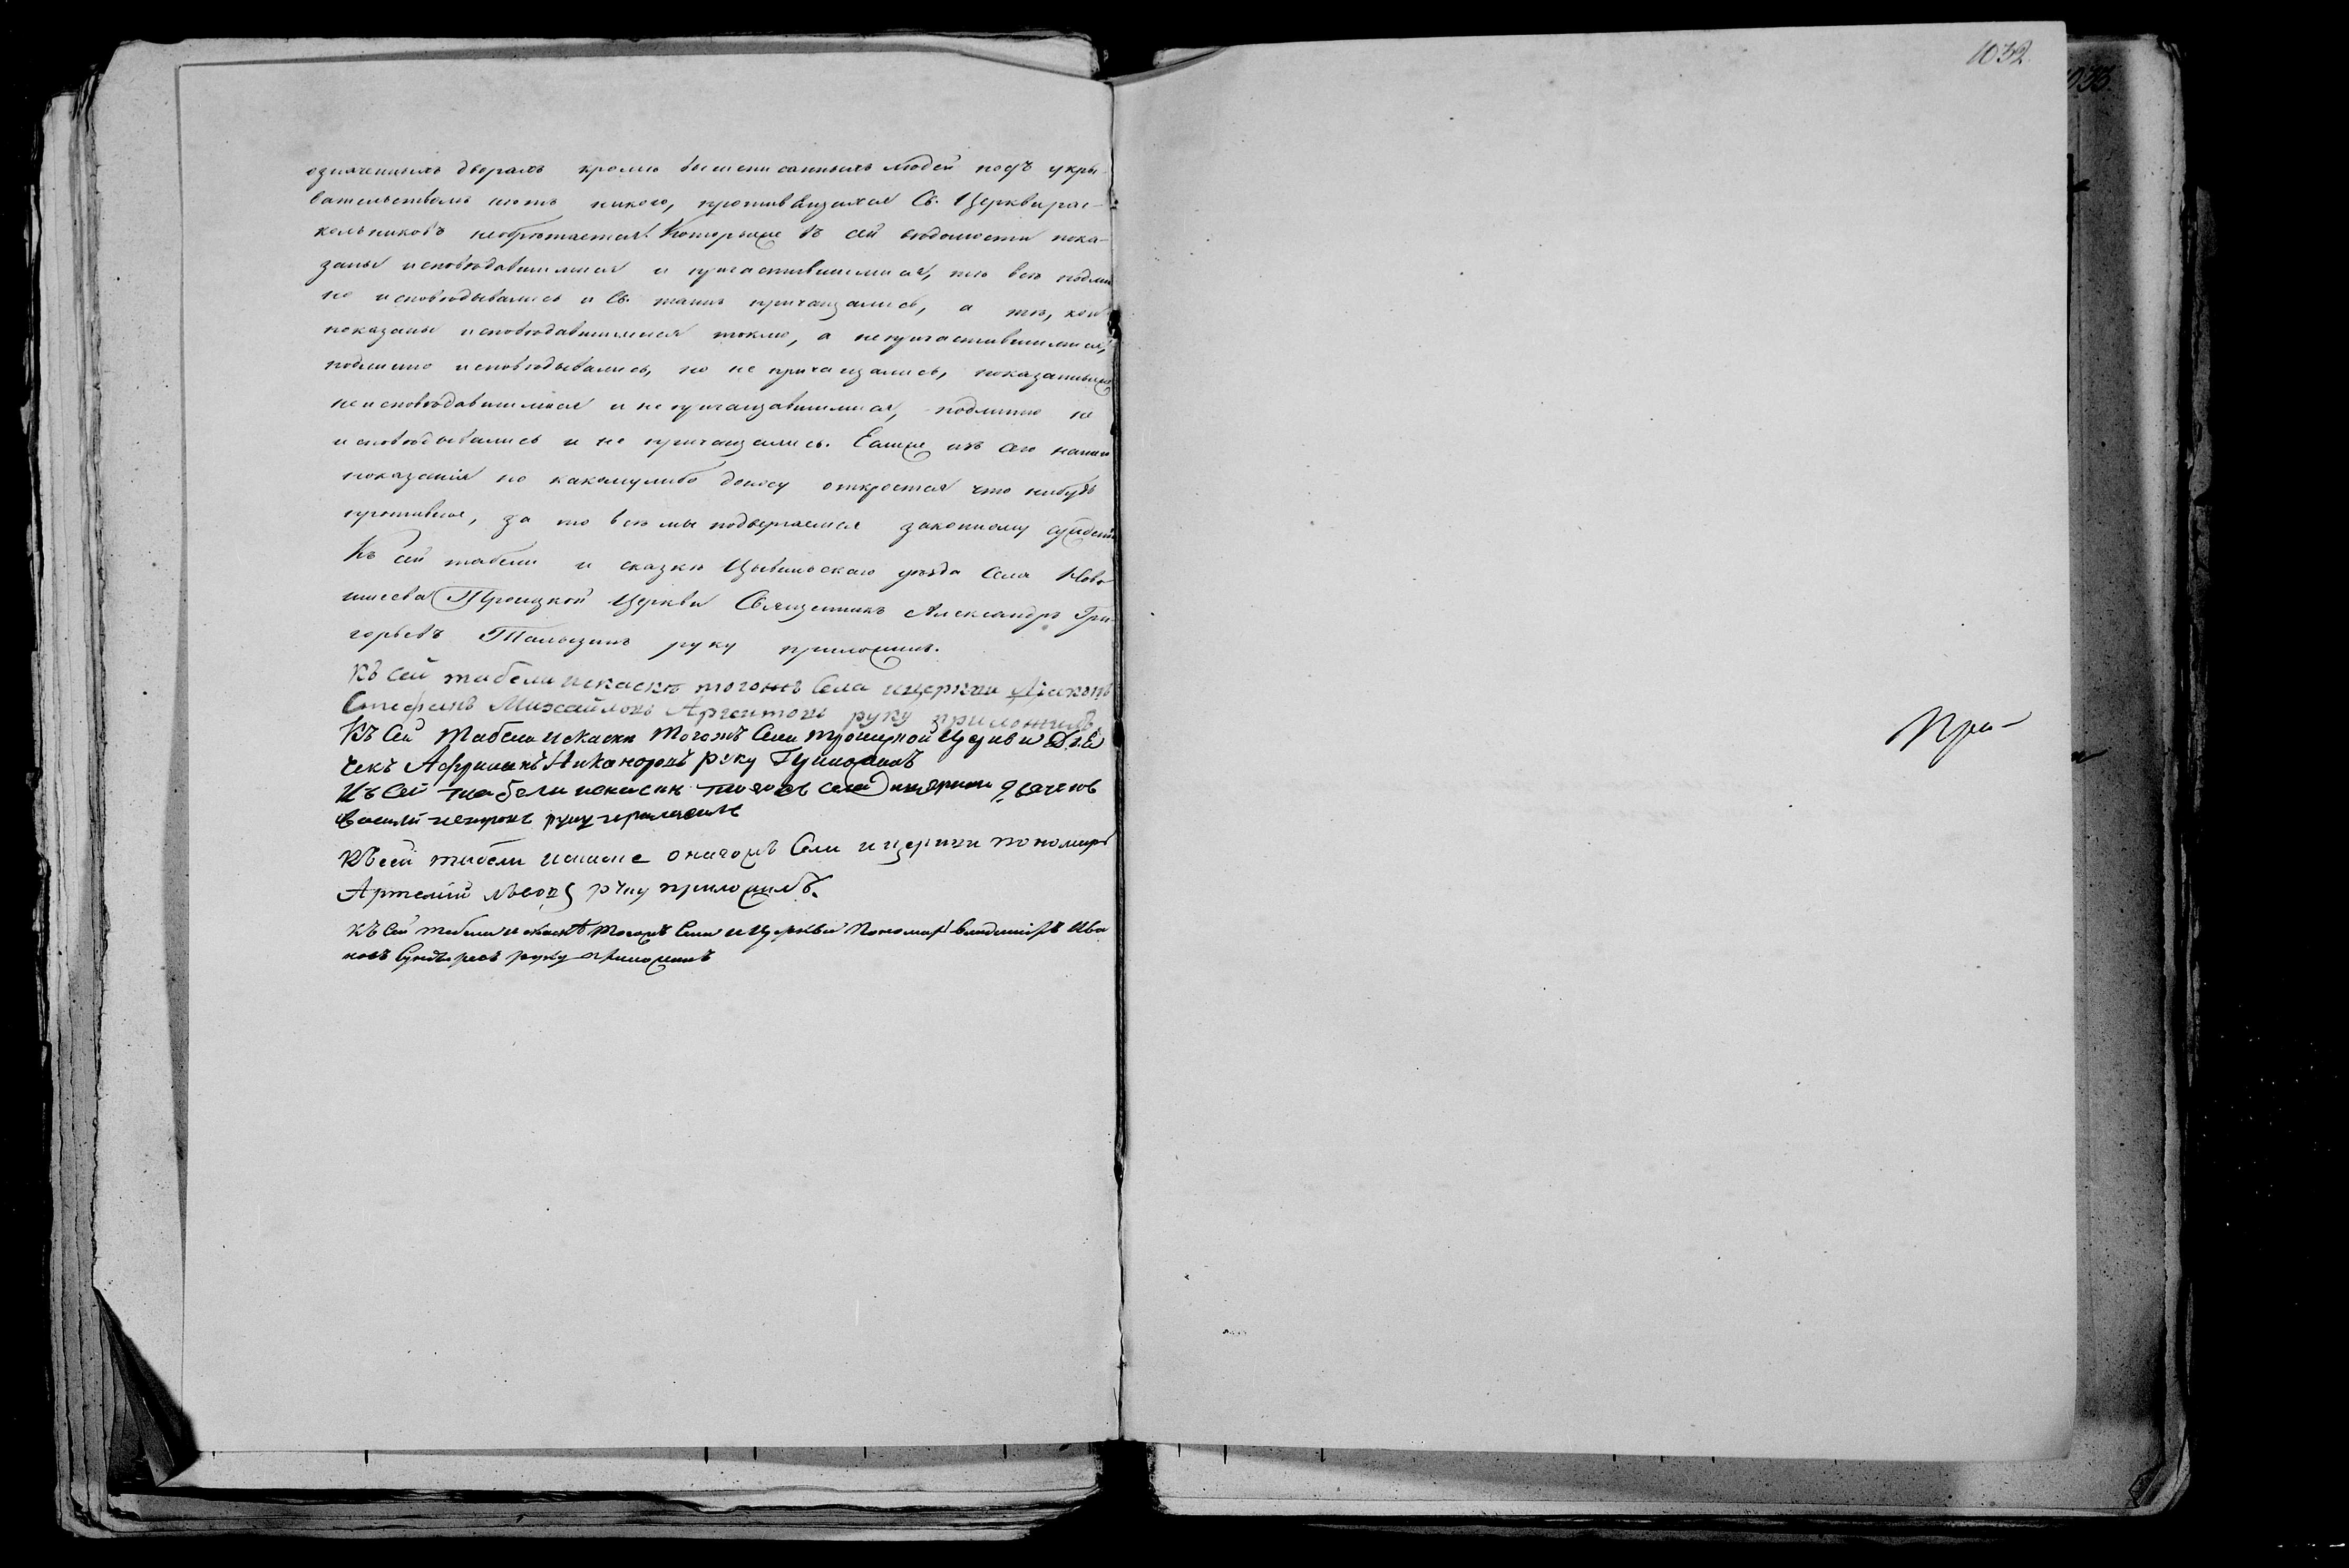 означенныхъ дворахъ кромѣ вышеписанныхъ людей подъ укры-
вательствомъ нѣтъ никого, противящихся Св. Церкви рас-
кольниковъ необрѣтается. Которыеже въ сей вѣдомости пока-
заны исповѣдавшимися и причастившимися, тѣ всѣ подлин
но исповѣдывались и Св. таинъ причащались, а тѣ, кои
показаны исповѣдавшимися токмо, а непричастившимися,
подлинно исповѣдывались, но не причащались, показанныеже
неисповѣдавшимися и непричащавшимися, подлинно не
исповѣдывались и не причащались. Ежели изъ сего нашего
показанія по какомулибо доносу откроется что нибудь
противное, за то всѣ мы подвергаемся законному сужденію
Къ сей табели и сказкѣ Цывильскаго уѣзда Села Ново
Троицкой Церкви Священникъ Александръ Гри-
горьевъ Талызинъ руку приложилъ.
Къ сей табели искаскѣ тогожъ Села ицеркви Діаконъ
Стефанъ Михайловъ руку приложилъ
Къ Сей табели искаски тогожъ Села троицкой Церкви Дья
чекъ Никаноровъ руку Приложилъ
Къ Сей табели искаски тогожъ села ицеркви дьячекъ
Василій петровъ руку приложилъ
Къ сей табели Села ицеркви пономарь
Артемій руку приложилъ.
Къ Сей табели искаскѣ тогожъ Села и Церкви Пономарь Владимиръ Ива
новъ руку приложилъ
1032
1033
При-